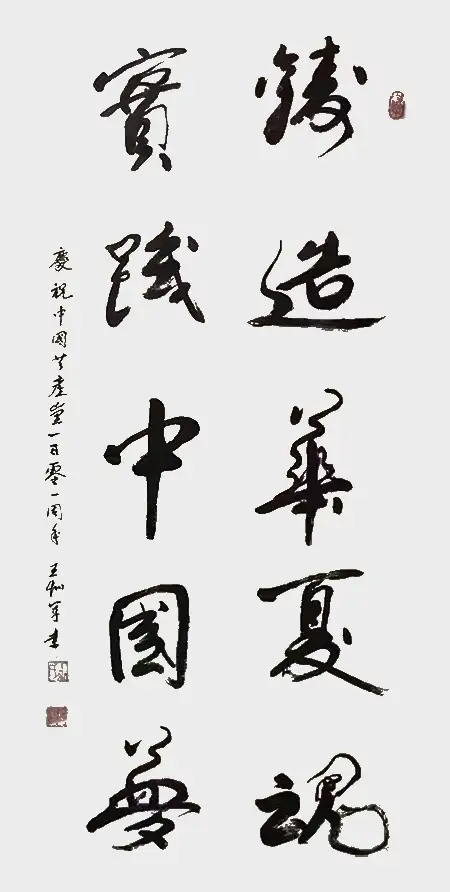 鑄造華夏魂
實踐中國夢
慶祝中國共產黨一百零一周年 王
軍書